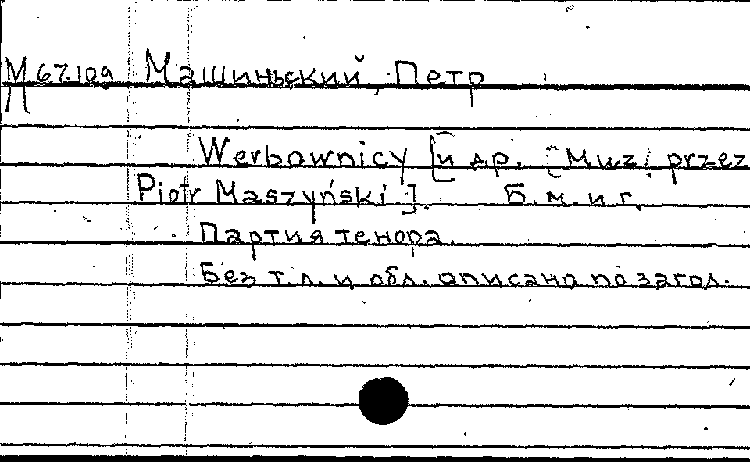 М 67.109 Машиньский, Петр
П
Werbownicy [и др. [Muz. przez
Piotr Maszyński]. Б.м. и г.
Партия тенора.
Без т.л. и обл. описано по загол.